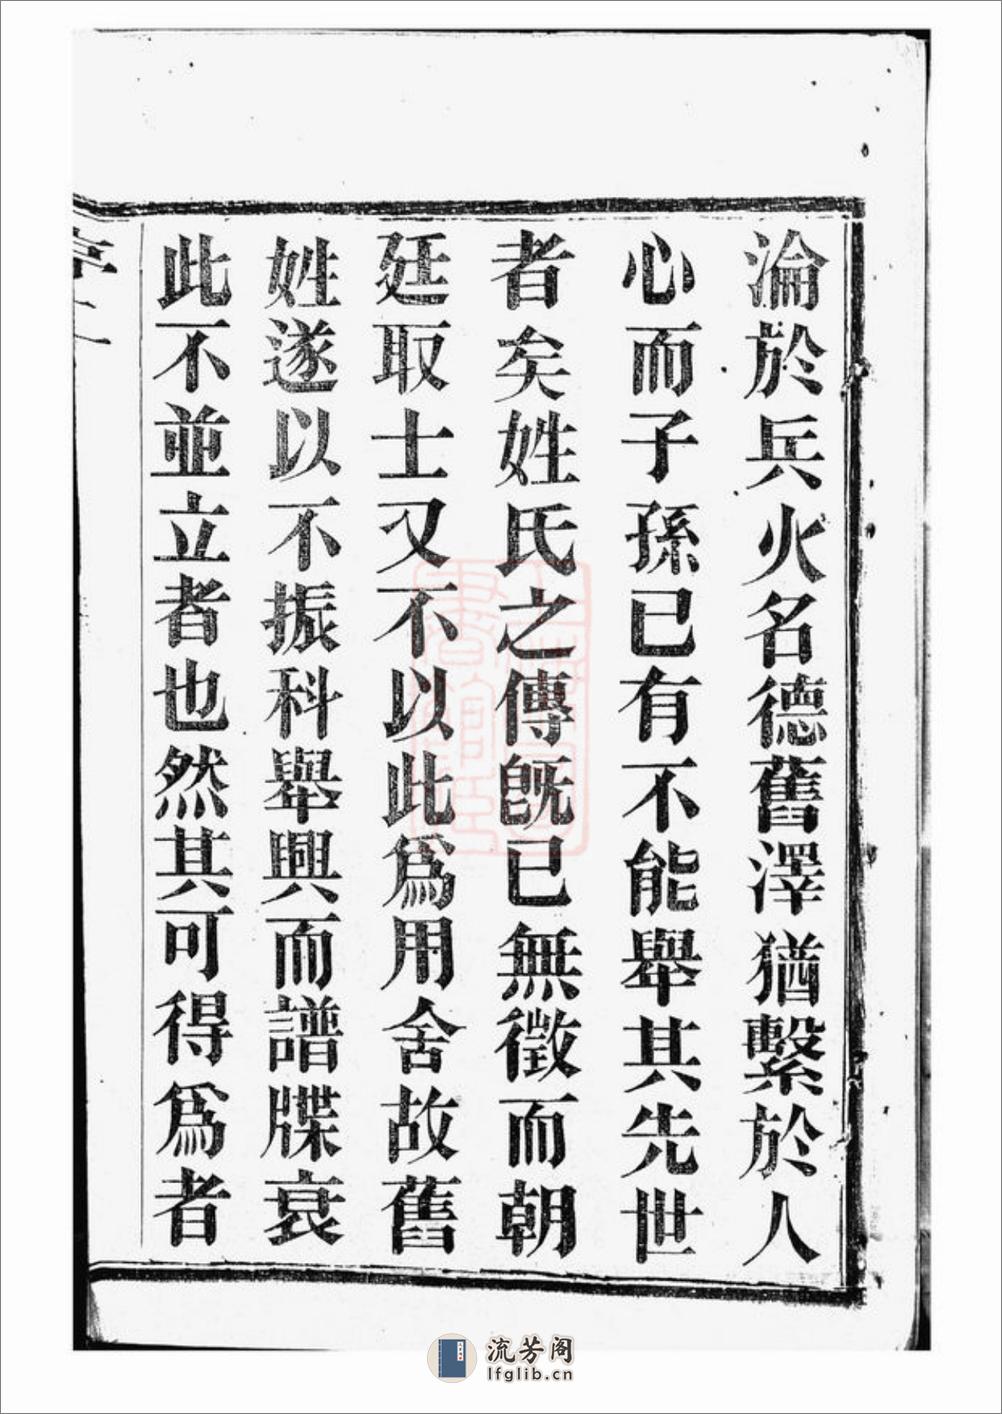 淪於兵火名德舊澤猶繫於人
心而子孫已有不能舉其先世
者矣姓氏之傳旣已無徵而朝
廷取士又不以此爲用舍故舊
姓遂以不振科舉興而譜牒衰
此不並立者也然其可得爲者
序二
流芳阁
lfglib.cn